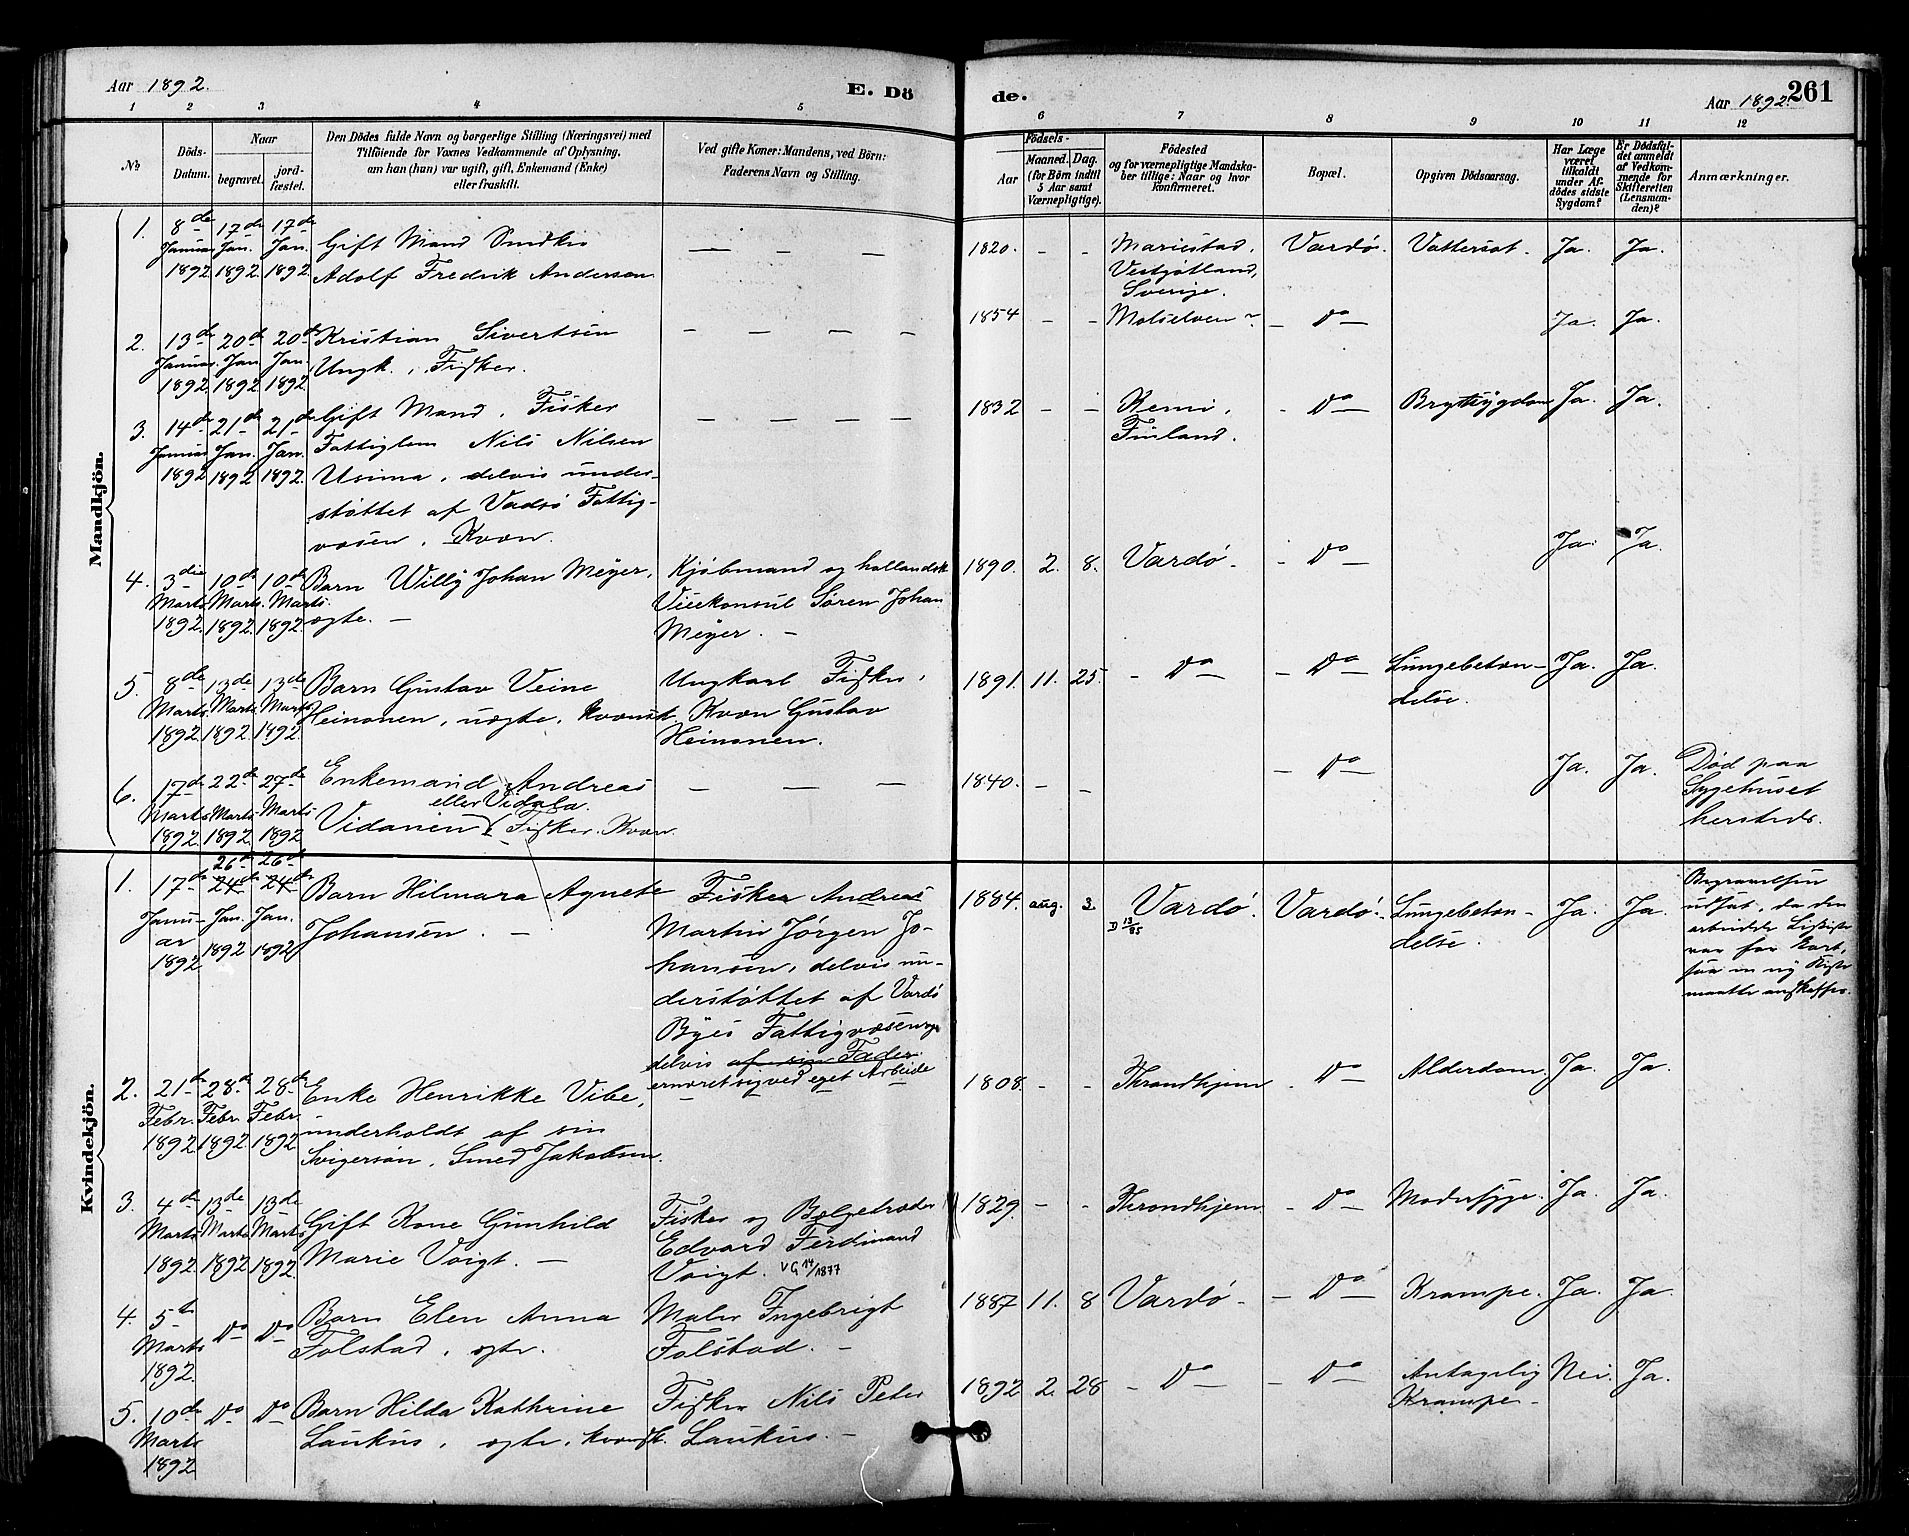 Aar 1892.
E. Dö
de.
Aar 1892.
261
1 2 3 4 5 6 7 8 9 10 11 12
No
Döds-Datum.
Naar
begravet.
jord-fæstet.
Den Dödes fulde Navn og borgerlige Stilling (Næringsvei) med
Tilföiende for Voxnes Vedkommende af Oplysning,
om han (hun) var ugift, gift, Enkemand (Enke)
eller fraskilt.
Ved gifte Koner: Mandens, ved Börn:
Faderens Navn og Stilling.
Födsels-
Aar
Maaned. Dag.
(for Börn indtil
5 Aar samt
Værnepligtige).
Födested
og for værnepligtige Mandska-
ber tillige: Naar og hvor
konfirmeret.
Bopæl.
Opgiven Dödsaarsag.
Har Læge
været
tilkaldt
under Af-
dödes sidste
Sygdom?
Er Dödsfal-
det anmeldt
af Vedkom-
mende for
Skifteretten
(Lensman-
den)?
Anmærkninger.
Mandkjön.
1. 8de Januar 1892 17de Jan. 1892 17de Jan. 1892
Gift Mand Snedker
Adolf Fredrik Andersen
1820. - - Mariestad,
Vestjøtland,
Sverige.
Vardø. Vattersot. Ja. Ja.
2. 13de Januar 1892 20de Jan 1892 20de Jan. 1892
Kristian Sivertsen
Ungk., Fisker.
1854 - - Molselven - Do - Ja. Ja.
3. 14de Januar 1892 21de Jan. 1892 21de Jan. 1892.
Gift Mand, Fisker
Fattiglem Nils Nilsen
Usima, delvis under-
støttet af Vadsø Fattig-
væsen. Kvæn.
1832 - - Kemi,
Finland.
- Do - Brystsygdom Ja. Ja.
4. 3die Marts 1892. 10de Marts. 1892 10de Marts. 1892.
Barn Willy Johan Meyer,
ægte. -
Kjøbmand og hollandsk
Vicekonsul Søren Johan
Meyer. -
1890. 2. 8. Vardø. - Do - Ja. Ja.
5. 8de Marts 1892. 13de Marts 1892. 13de Marts 1892.
Barn Gustav Veine
Heinonen, uægte, kvænsk.
Ungkarl Fisker,
Kvæn Gustav
Heinonen.
1891. 11. 25 - Do - - Do - Lungebetæn-
delse.
Ja. Ja.
6. 17de Marts 1892. 22de Marts 1892 27de Marts 1892.
Enkemand Andreas
eller Vidala.
Vidanen Fisker. Kvæn
1840. - - - Do - Ja. Ja.
Død paa
Sygehuset
hersteds.
Kvindekjön.
1. 17de Januar 1892 26de 24de Jan. 1892 26de 24de Jan. 1892
Barn Hilmara Agnete
Johansen. -
Fisker Andreas
Martin Jørgen Jo-
hansen, delvis un-
derstøttet af Vardø
Byes Fattigvæsen og
delvis af sin Fader
ernæret sig ved eget Arbeide
1884. aug. 3. Vardø. D 13/85 Vardø. Lungebetæn-
delse.
Ja. Ja.
Begravelsen
udsat, da den
arbeidede Ligkiste
var for kort,
saa en ny Kiste
maatte anskaffes.
2. 21de Febr. 1892 28de Febr. 1892. 28de Febr. 1892
Enke Henrikke Vibe,
underholdt af sin
Svigersøn, Smed Jakobsen.
1808. - - Throndhjem - Do - Alderdom. Ja. Ja.
3. 4de Marts 1892. 13de Marts 1892 13de Marts 1892
Gift Kone Gunhild
Marie Voigt. -
Fisker og Bælgetræder
Edvard Ferdinand
Voigt. VG 14/1877
1829. - - Throndhjem - Do - Modersyge. Ja. Ja.
4. 5te Marts 1892. Do Do
Barn Elen Anna
Folstad, ægte.
Maler Ingebrigt
Folstad. -
1887 11. 8 Vardø - - Do - Krampe. Ja. Ja.
5. 10de Marts 1892 Do Do
Barn Hilda Kathrine
Laukus, ægte, kvænsk.
Fisker Nils Peter
Laukus. -
1892 2. 28 - Do - - Do - Antagelig
Krampe -
Nei. Ja.